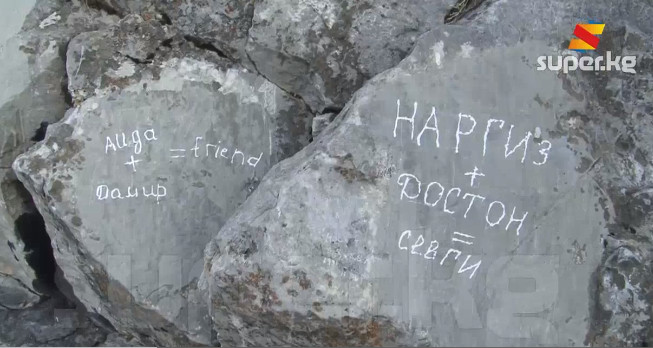 super.kg
Аида
+
Дамир
= friend
НАРГИЗ
+
ДОСТОН
=
СЕВГИ
super.kg